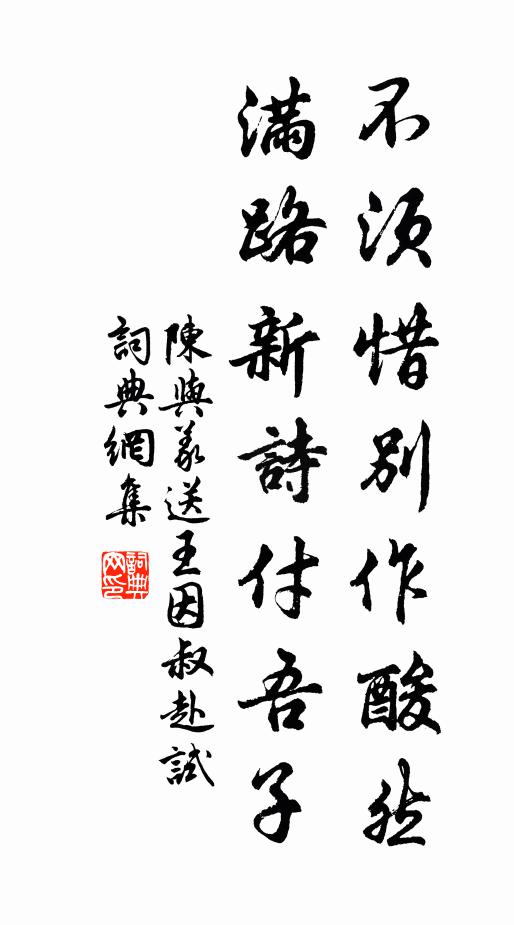 不須惜別作酸然
滿路新詩付吾子
陳與義送王因叔赴試
詞典網集
詞典
网印